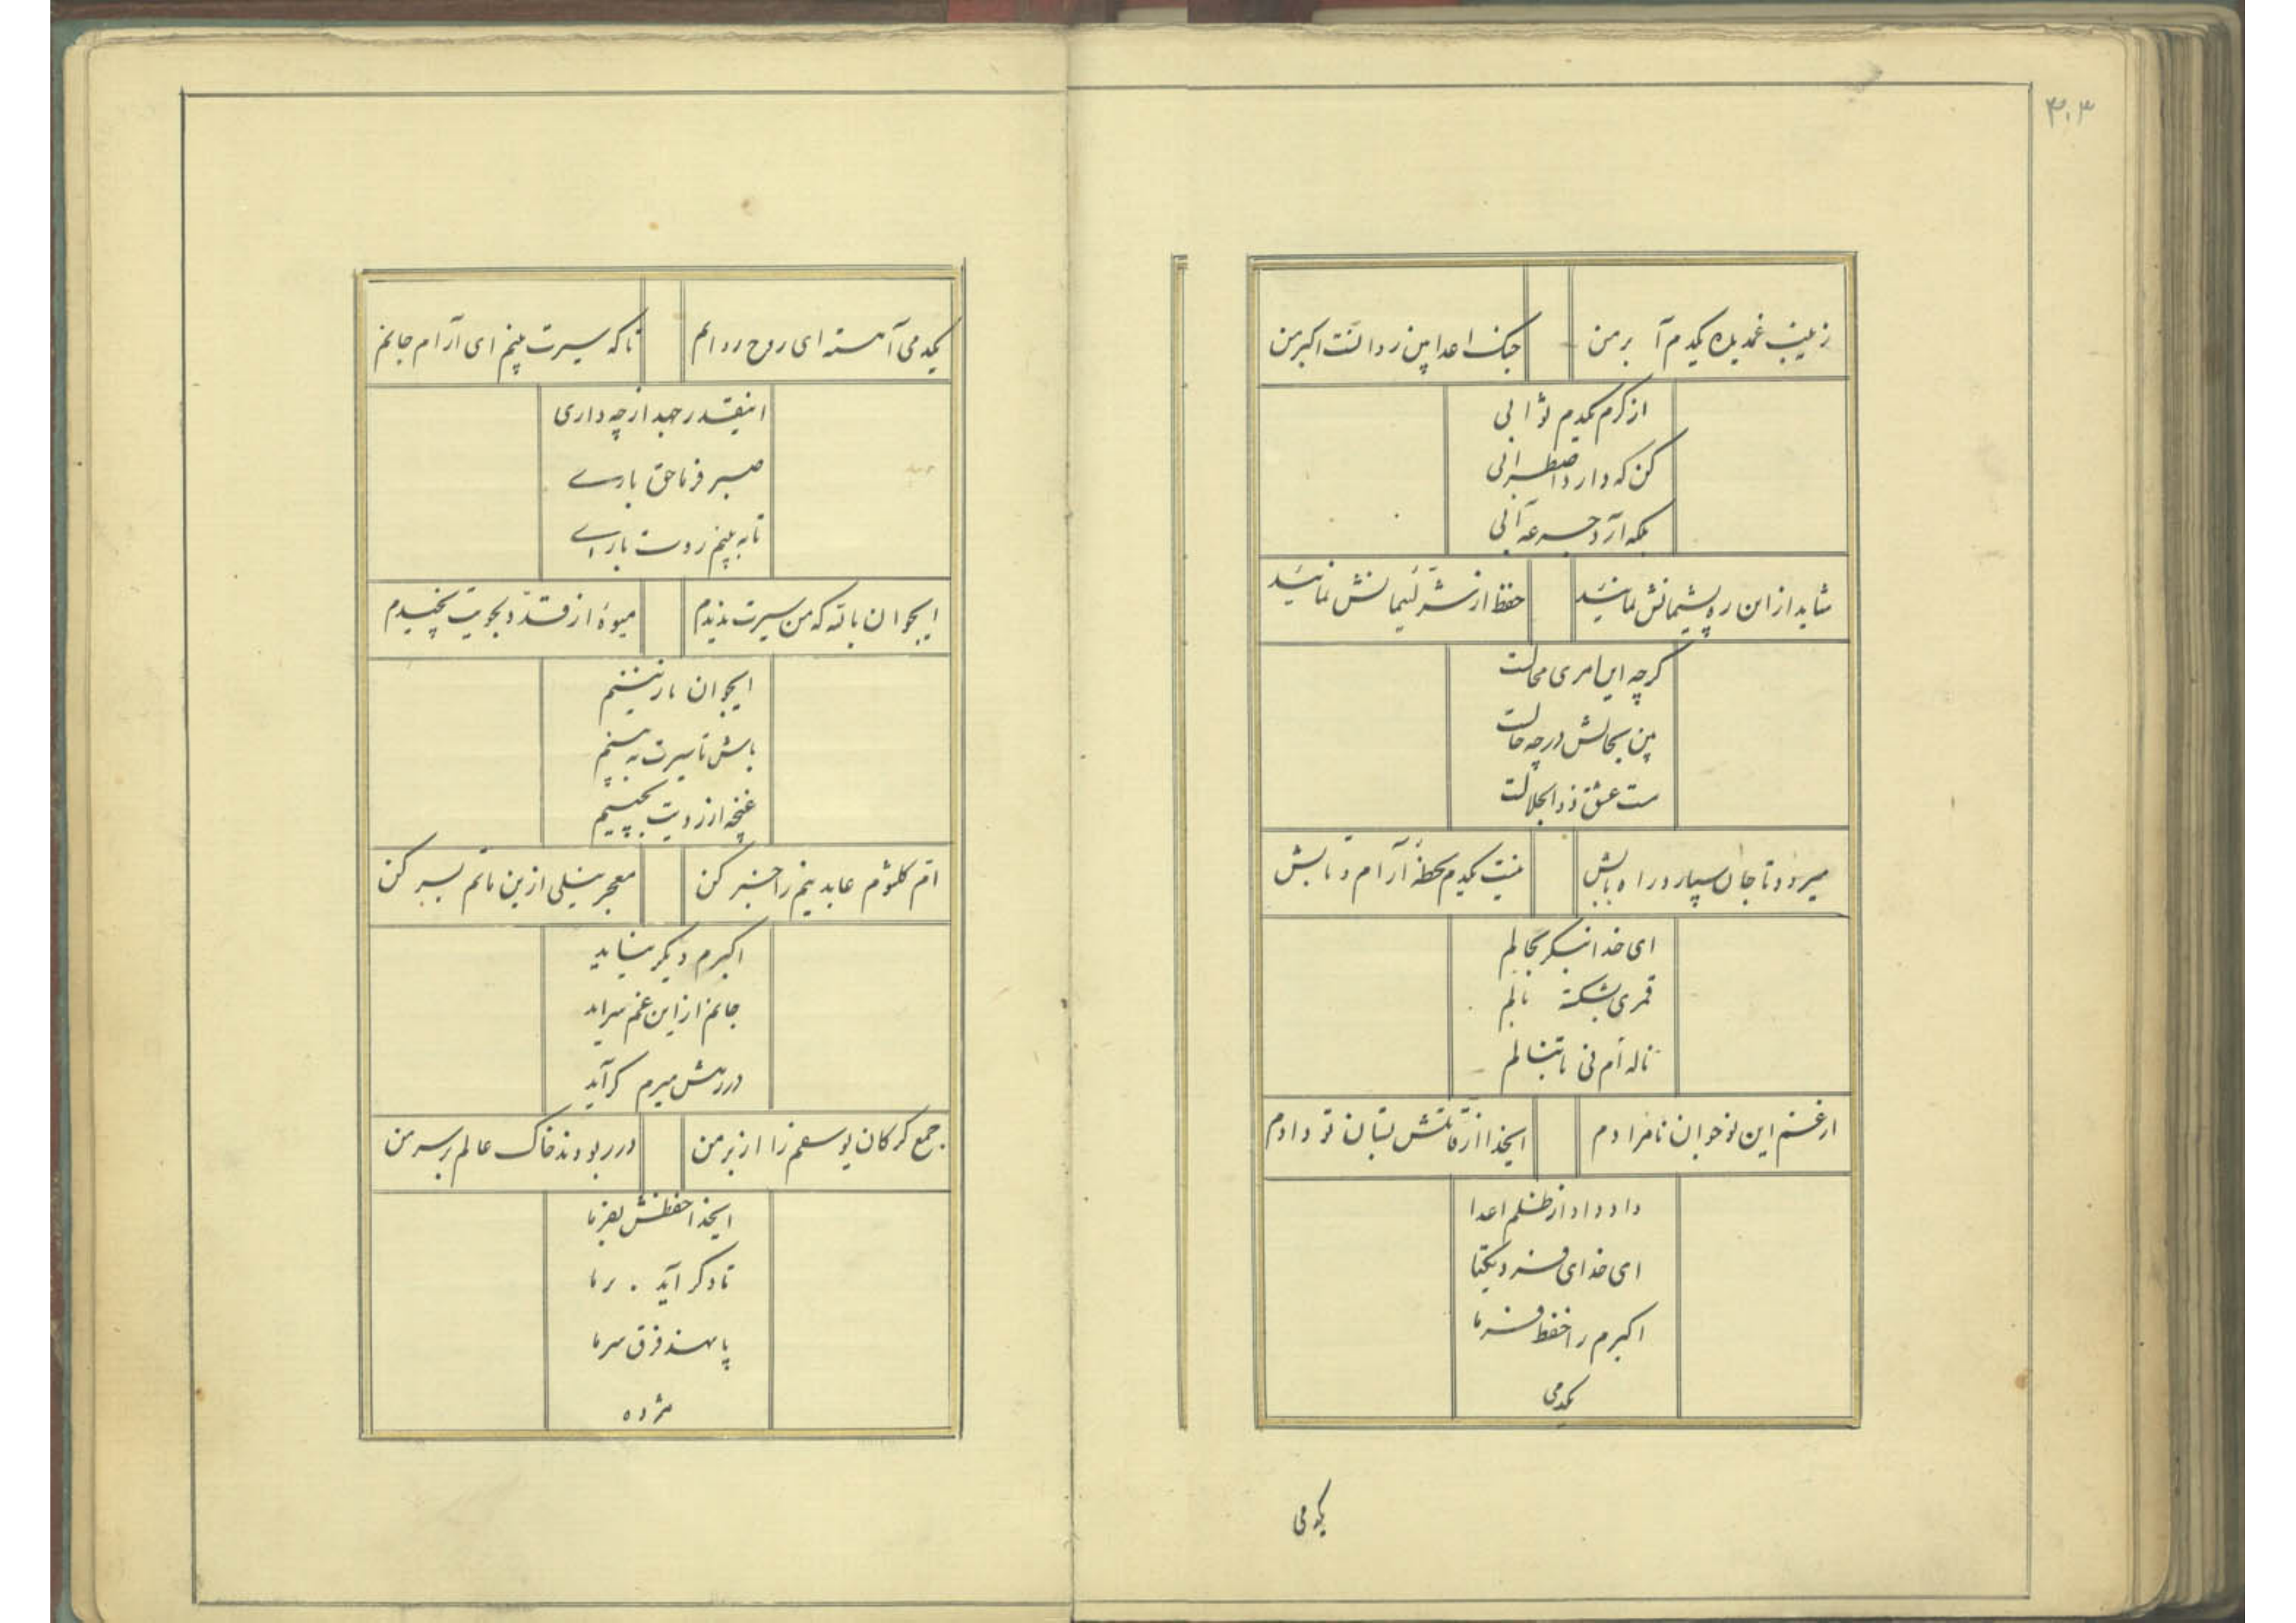 ۴۰۳
زینب غمدیده یکدم آ برمن
جنک اعدا بین روانست اکبر من
از کرم یکدم ثوابی
کن که دارد اضطرابی
بلکه آرد جرعه آبی
شاید از این ره پشیمانش نمائید
حفظ از شر لئیمانش نمائید
کرچه این امری محالست
بین بحالش در چه حالست
مست عشق ذوالجلالست
میرود تا جان سپارد راه بابش
نیست یکدم لحظهٔ آرام و تابش
ای خدا بنکر بحالم
قمری بشکسته بالم
ناله ام نی تا بنالم
از غم این نوجوان نامرادم
ایخدا از قاتلش بستان تو دادم
داد و داد از ظلم اعدا
ای خدای فرد یکتا
اکبرم را حفظ فرما
یکدمی
یکدمی
یکدمی آهسته ای روح روانم
تا که سیرت بینم ای آرام جانم
اینقدر جهد از چه داری
صبر فرما حق باری
تا به بینم روت باری
ایجوان باته که من سیرت ندیدم
میوهٔ از قد دلجویت نچیدم
ایجوان نازنینم
باش تا سیرت به بینم
غنچه از رویت بچینم
ام کلثوم عابدینم را خبر کن
معجر نیلی ازین ماتم بسر کن
اکبرم دیکر نیاید
جانم از این غم سراید
در رهش میرم کر آید
جمع کرکان یوسفم را از بر من
در ربودند خاک عالم بر سر من
ایخدا حفظش بفرما
تا دکر آید بر ما
پا نهد فرق سر ما
مژده